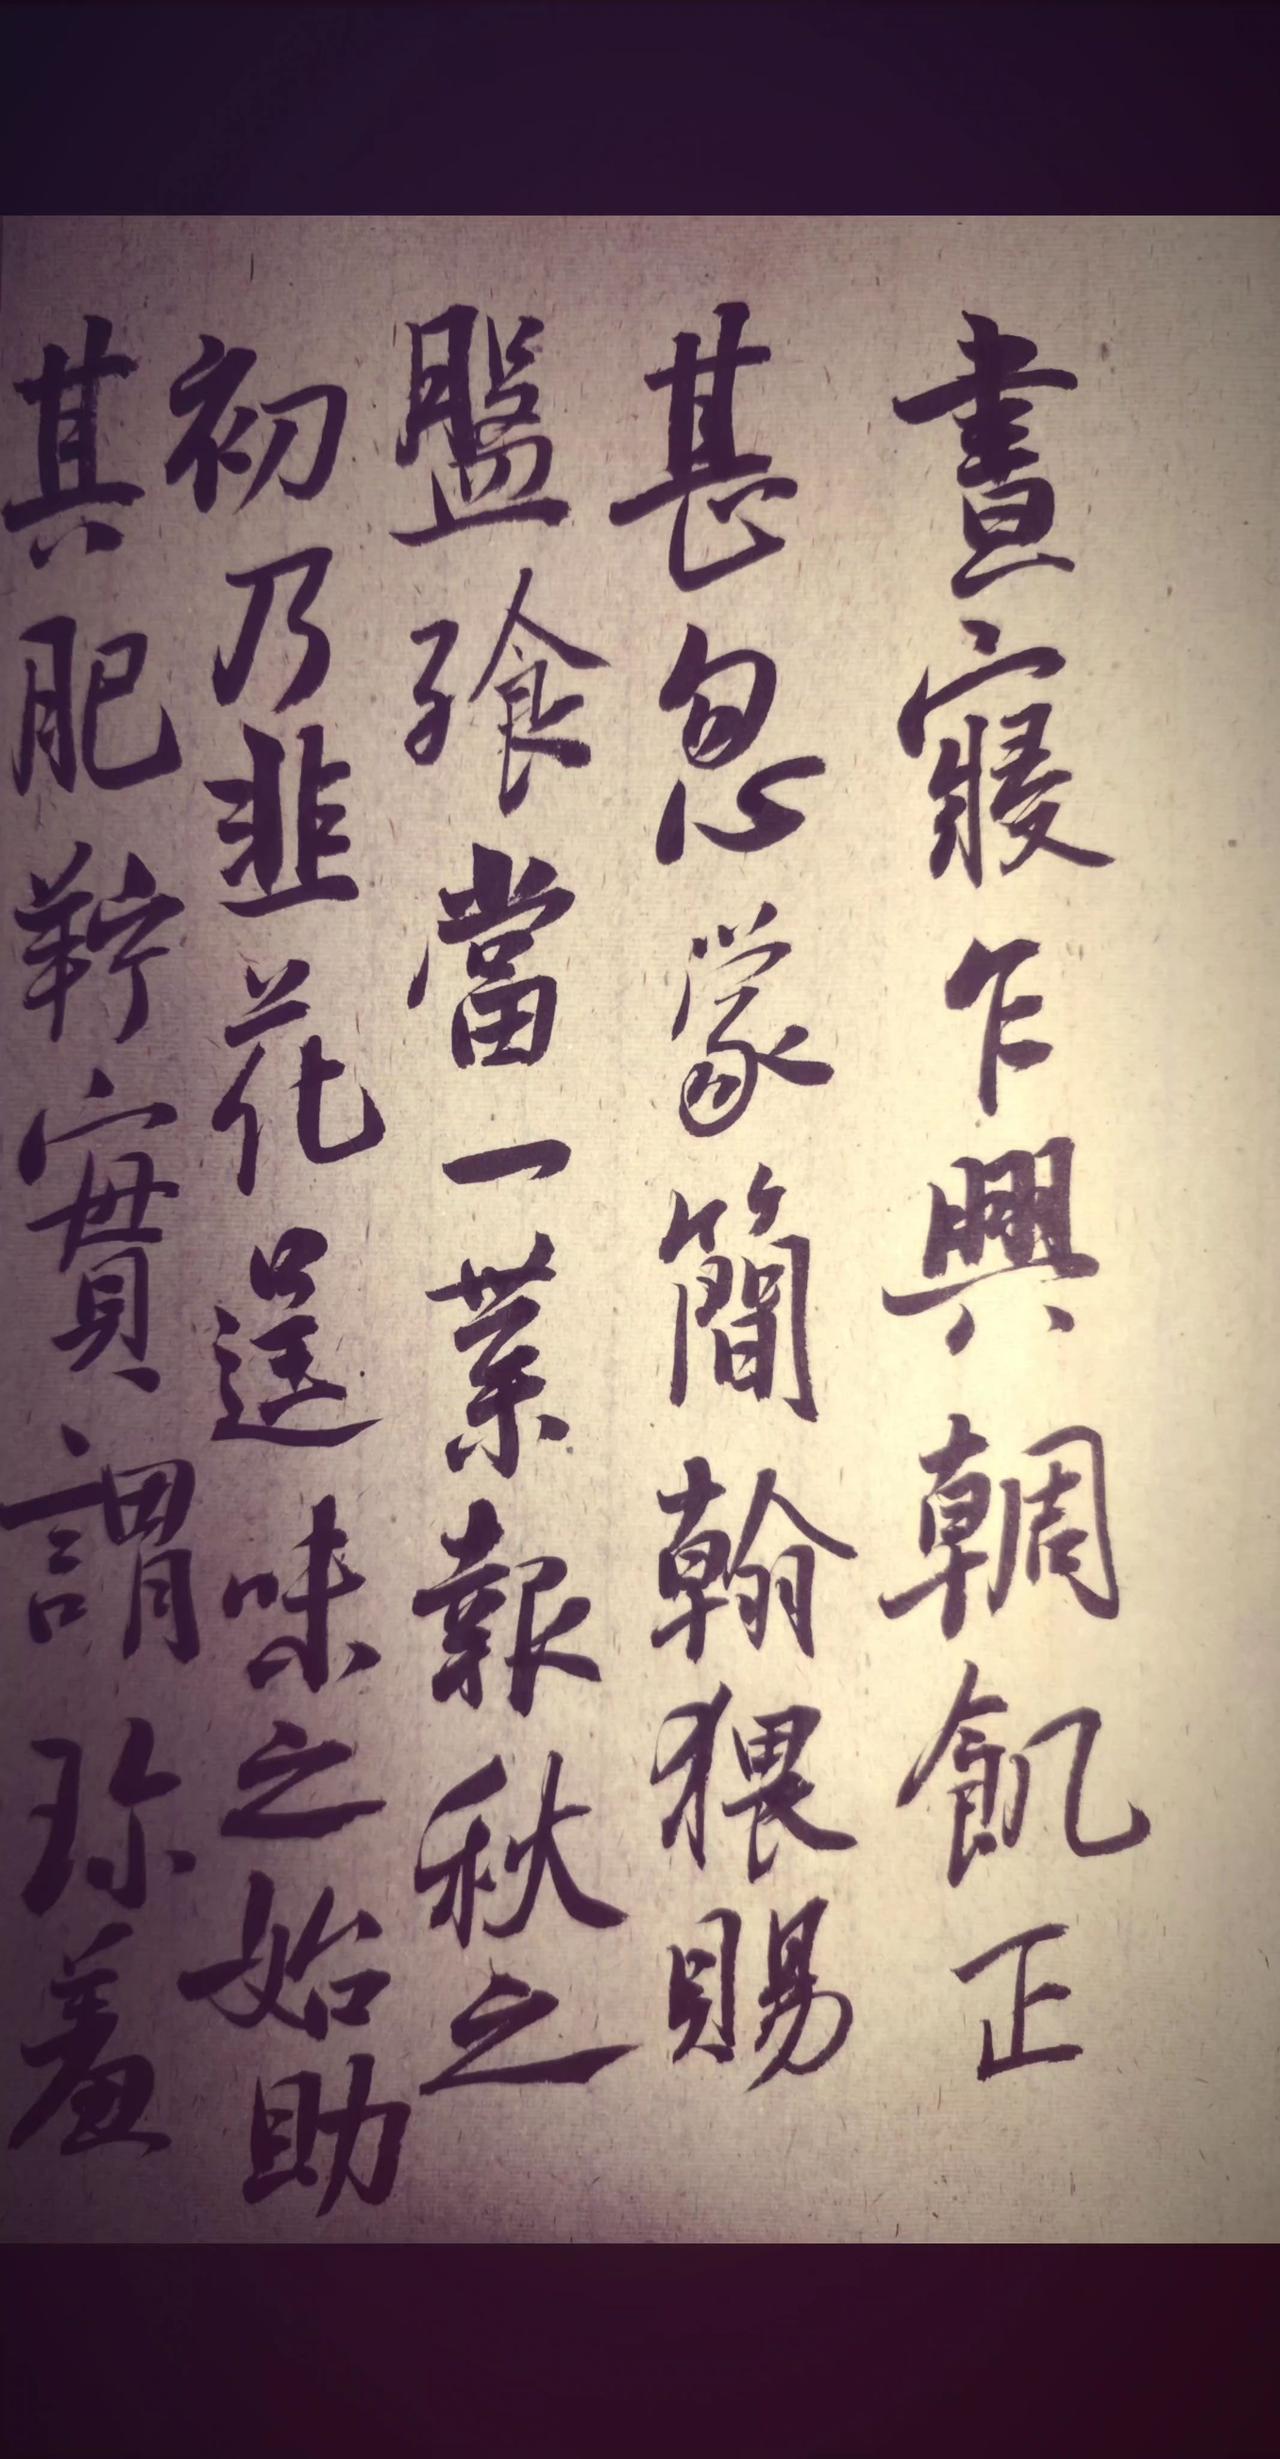 晝寢乍興輖飢正
甚忽蒙簡翰猥賜
盤飧當一葉報秋之
初乃韭花逞味之始助
其肥羜實謂珍羞